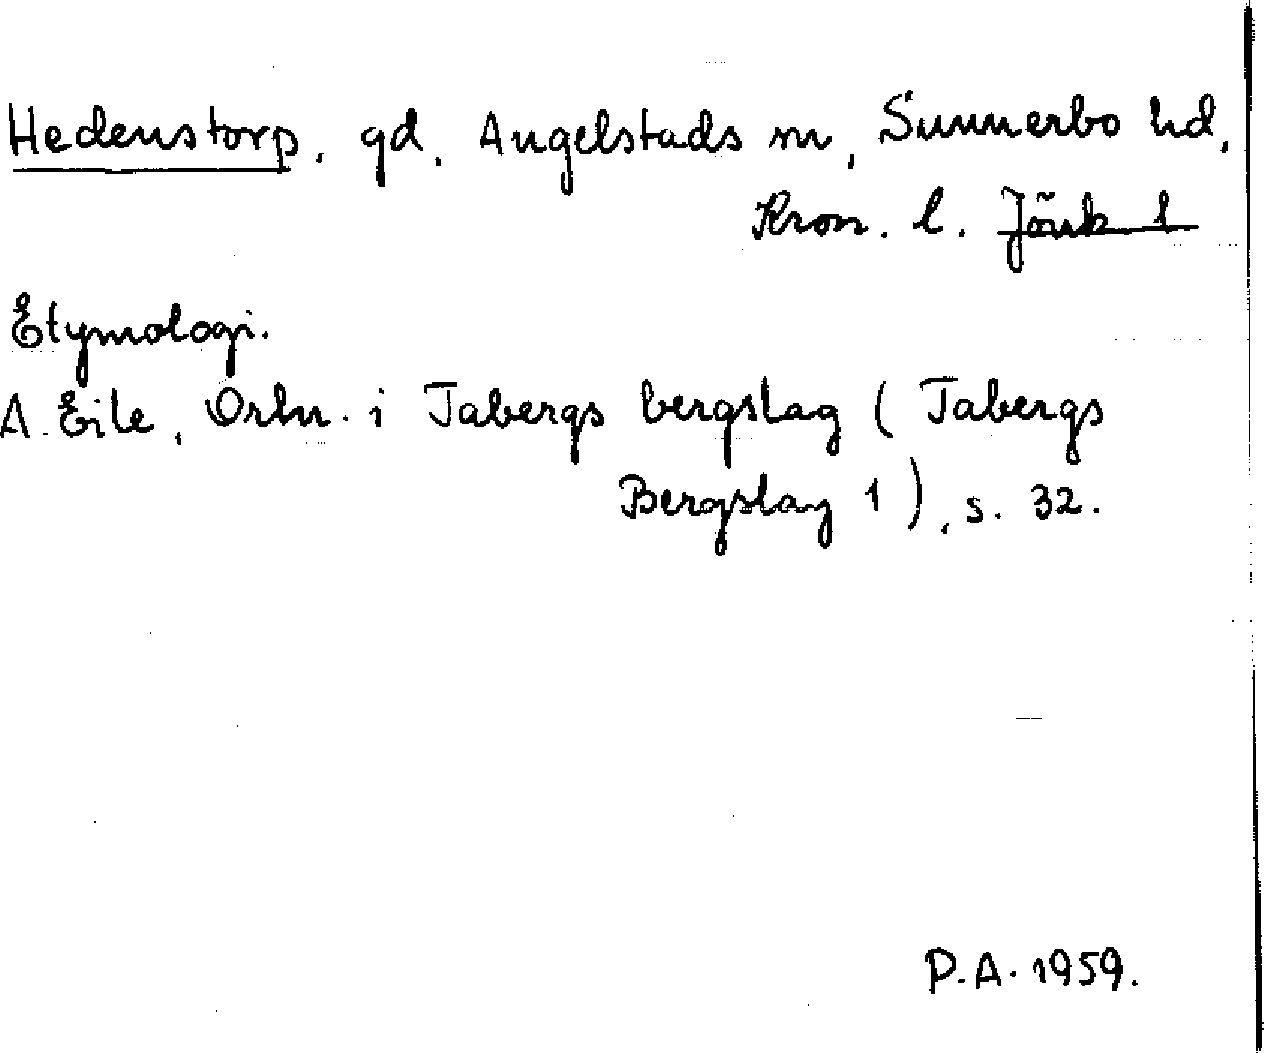 Hedenstorp, gd, Angelstads sn, Sunnerbo hd,
Kron. l. Jönk l
Etymologi.
A. Eile, Ortn. i Tabergs bergslag (Tabergs
Bergslag 1), s. 32.
P.A. 1959.